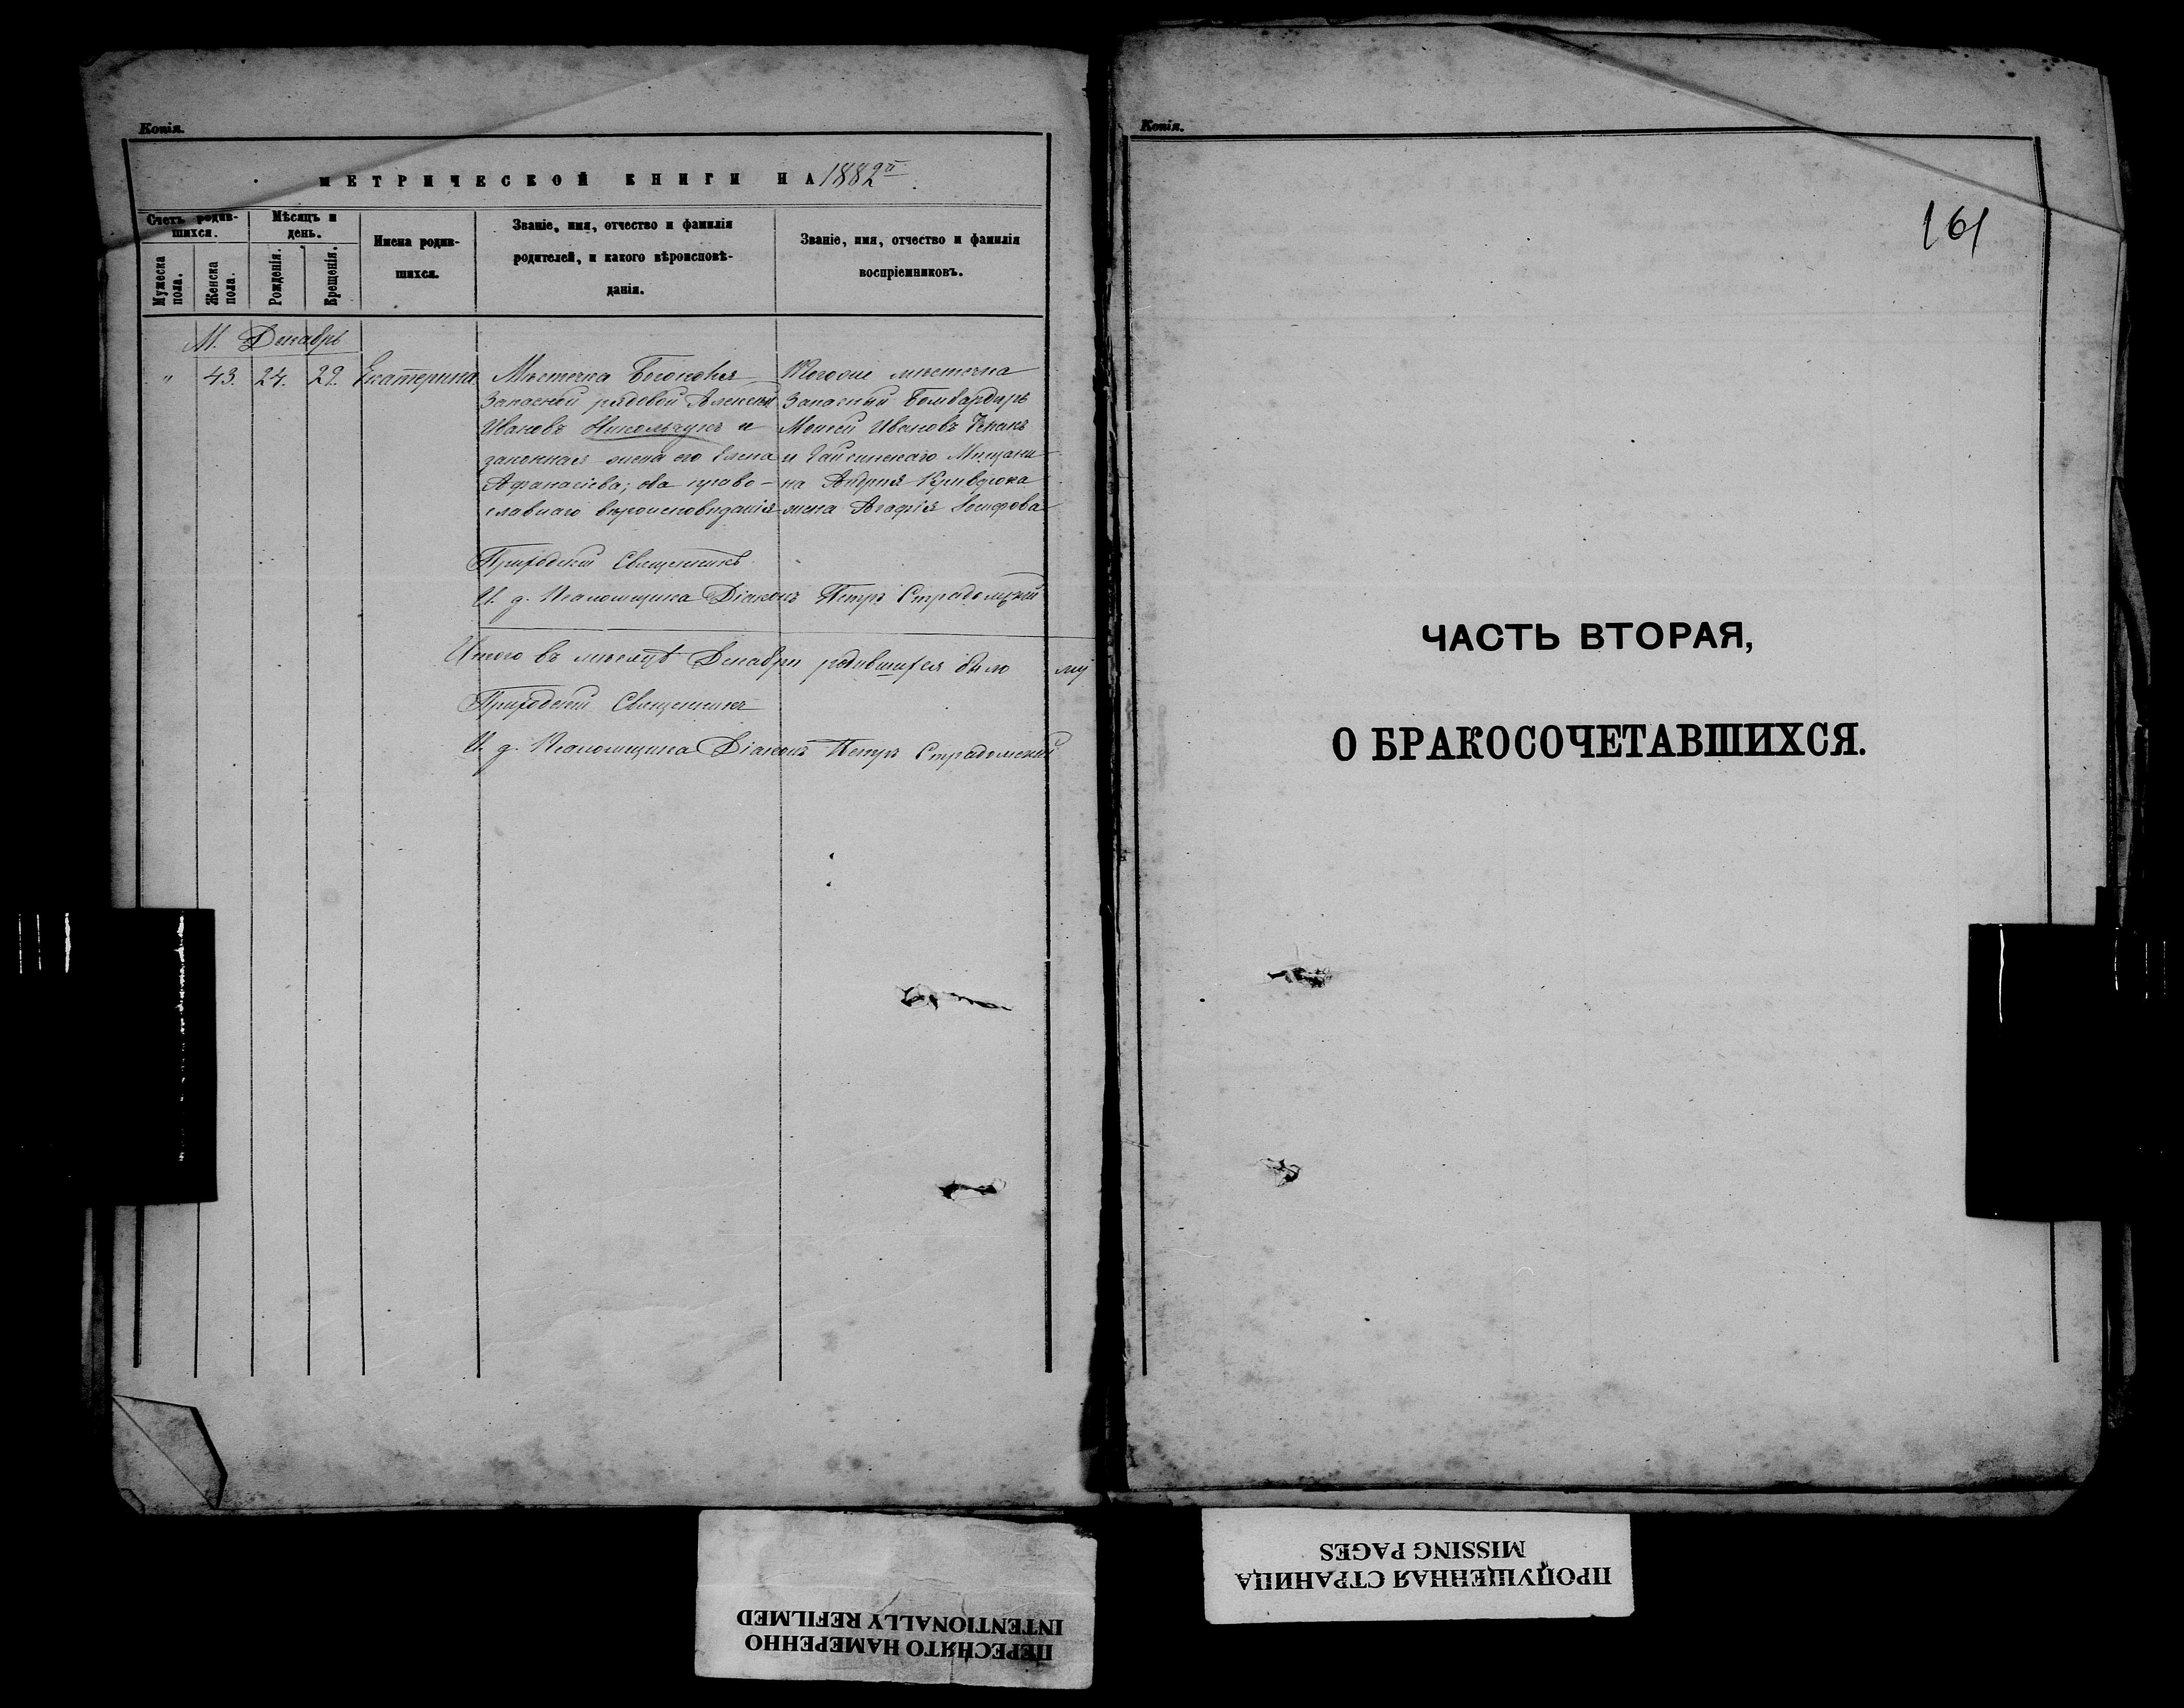 Копія.
МЕТРИЧЕСКОЙ КНИГИ НА 1882й
Счетъ родив-
шихся.
Мѣсяцъ и
день.
Имена родив-
шихся.
Званіе, имя, отчество и фамилія
родителей, и какого вѣроисповѣ-
данія.
Званіе, имя, отчество и фамилія
воспріемниковъ.
Мужеска
пола.
Женска
пола.
Рожденія.
Крещенія.
М. Декабрь
" 43. 24. 29. Екатерина
Мѣстечка
Запасный рядовой Алексѣй
Ивановъ Никольчукъ и
законная жена его Елена
Афанасіева; оба право-
славнаго вѣроисповѣданія
тогоже мѣстечка
Запасный Бомбардиръ
Моисей Ивановъ
и Гайсинскаго Мѣщани-
на Андрея Кривдюка
жена Агафія Іосифова
Приходскій Священникъ
И. д. Псаломщика Діаконъ Петръ Страдомскій
Итого въ мѣсяцѣ Декабрѣ родившихся было му
Приходскій Священникъ
И. д. Псаломщика Діаконъ Петръ Страдомскій
Копія.
161
ЧАСТЬ ВТОРАЯ,
О БРАКОСОЧЕТАВШИХСЯ.
ПЕРЕСНЯТО НАМЕРЕННО
INTENTIONALLY REFILMED
ПРОПУЩЕННАЯ СТРАНИЦА
MISSING PAGES